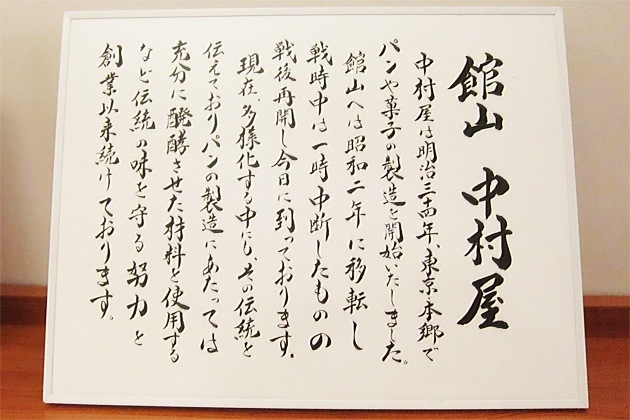 館山 中村屋
中村屋は明治三四年、東京・本郷で
パンや菓子の製造を開始いたしました。
館山へは昭和二年に移転し
戦時中は一時中断したものの
戦後再開し今日に到っております。
現在、多様化する中にも、その伝統を
伝えておりパンの製造にあたっては
充分に醗酵させた材料を使用する
など伝統の味を守る努力を
創業以来続けております。